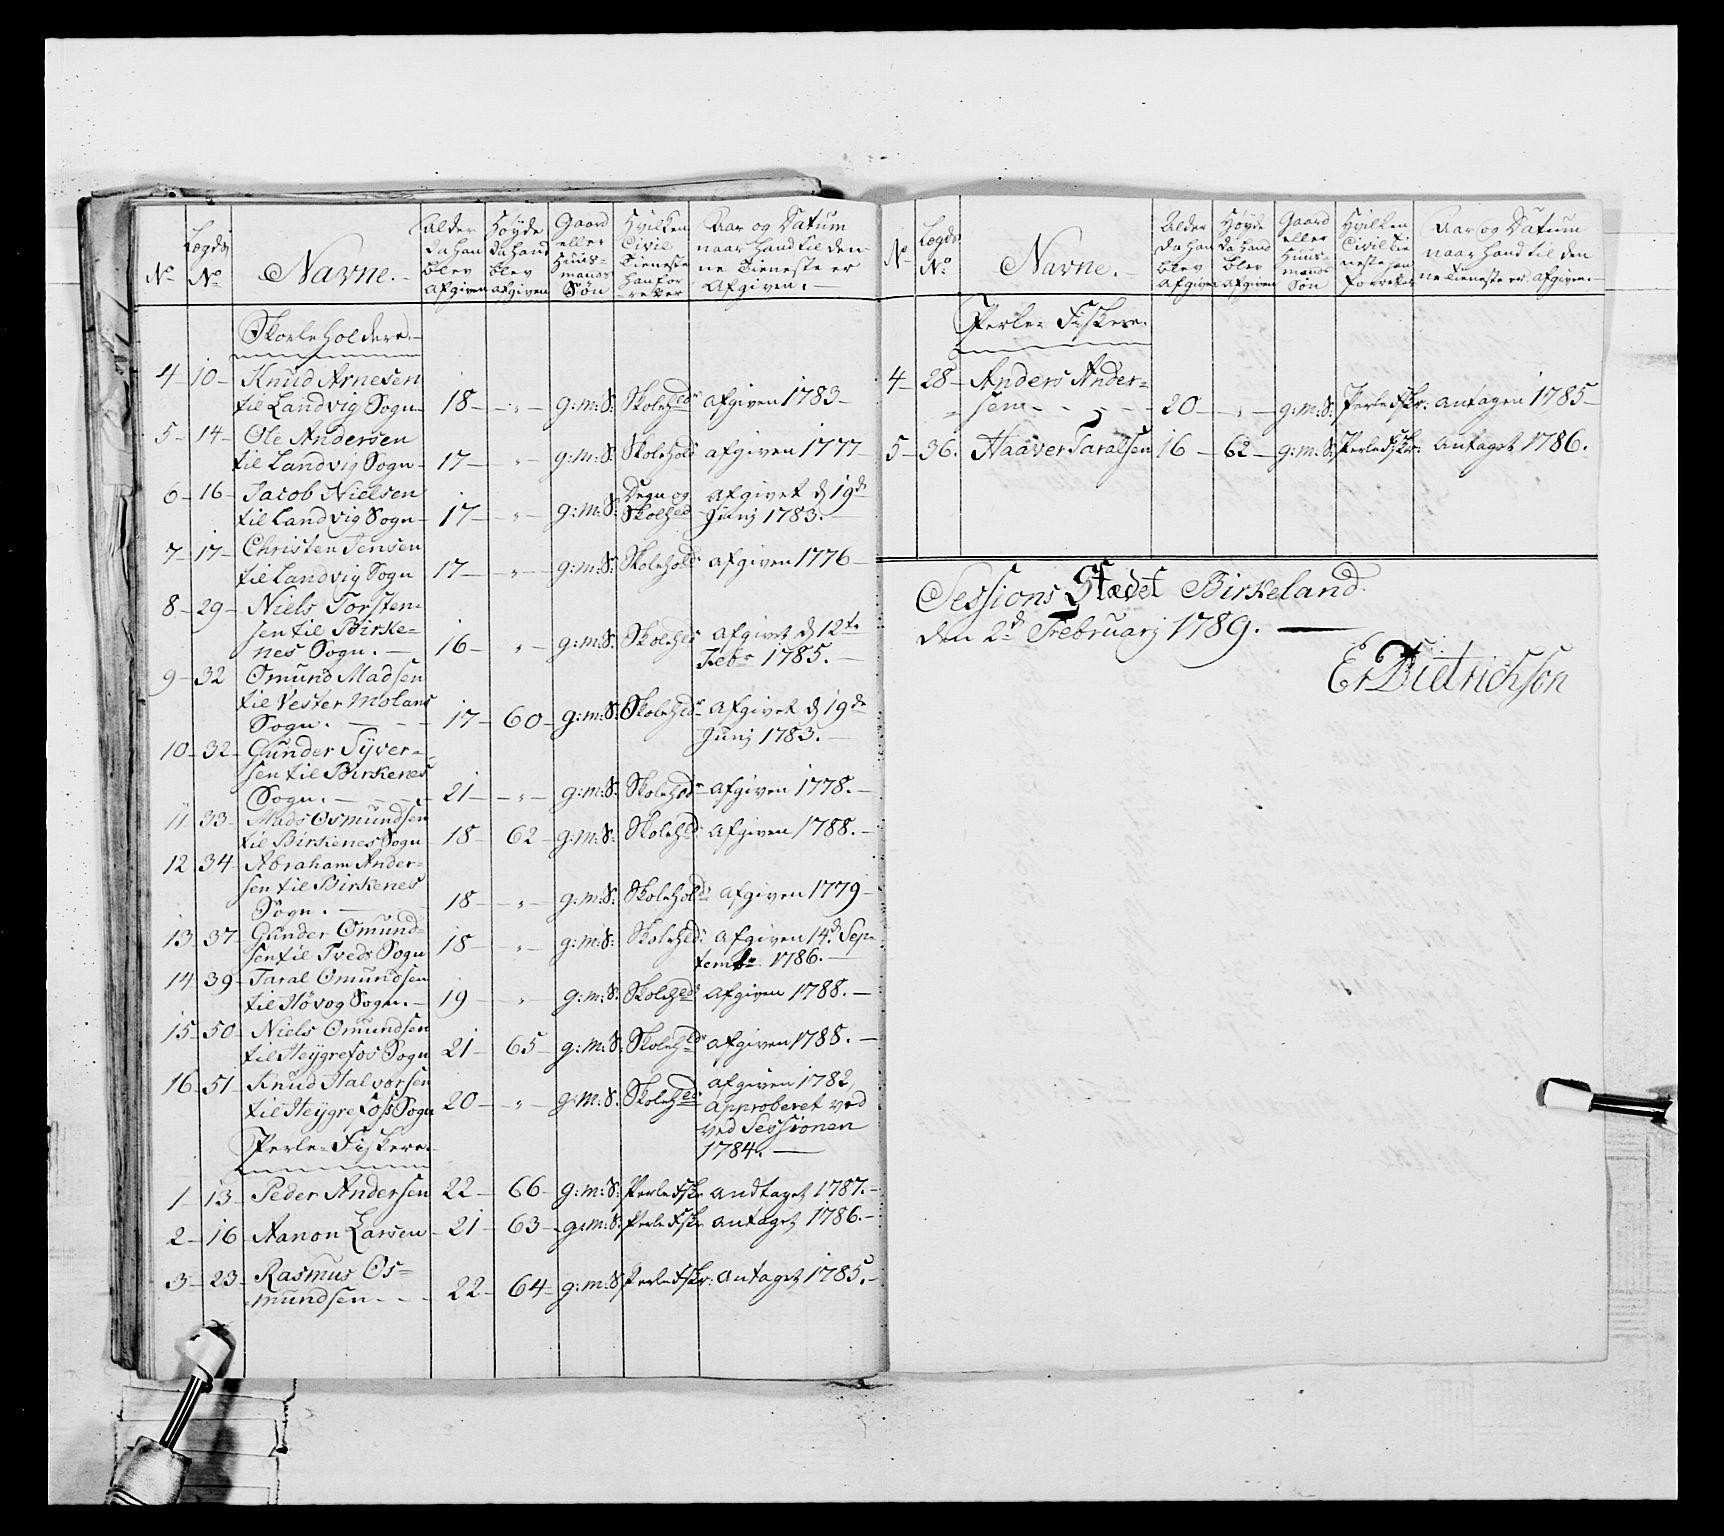 No
Lægds No
Navne.
Alder da han blev afgiven
Høyde da hand blev afgiven
Gaard eller Huus-mands Søn
Hvilken Civil Tieneste han for-retter
Aar og Datum naar hand til den-ne Tieneste er Afgiven.
Skoleholdere.
4 10 Knud Arnesen
til Landvig Sogn 18 " g:m:S: Skolehed: afgiven 1783
5 14 Ole Andersen
til Landvig Sogn 17 " g:m:S: Skolehold: afgiven 1777
6 16 Jacob Nielsen Degn og afgivet d 19de
til Landvig Sogn 17 " g:m:S: Skolehed Junij 1783.
7 17 Christen Jensen
til Landvig Sogn 17 " g:m:S: Skolehold: afgiven 1776
8 29 Niels Torsten=
sen til Birke= afgivet d 12te
nes Sogn. 16 " g:m:S: Skolehed Febr 1785.
9 32 Omund Madsen
til Vester Molans
Sogn. 17 60 g:m:S: Skolehed: afgivet d 19de
Junij 1783.
10 32 Gunder Syver=
sen til Birkenes
Sogn. 21 " g:m:S: Skolehed: afgiven 1778.
11 33 Mads Osmundsen
til Birkenes Sogn 18 62 g:m:S: Skolehd: afgiven 1788.
12 34 Abraham Ander=
sen til Birkenes
Sogn. 18 " g:m:S: Skolehold: afgiven 1779
13 37 Gunder Omund=
sen til Tveds Sogn 18 " g:m:S: Skolehed: afgiven 14d Sep=
tembr 1786.
14 39 Taral Omundsen
til Høvog Sogn. 19 " g:m:S: Skolehed: afgiven 1788.
15 50 Niels Omundsen
til Heygrefos Sogn 21 65 g:m:S: Skolehed: afgiven 1788.
16 51 Knud Halvorsen afgiven 1782,
til Heygrefoss Sogn 20 " g:m:S: Skolehed: approberet ved
ved Sessionen
1784.
Perle=Fiskere.
1 13 Peder Andersen 22 66 g:m:S: Perle Fskr andtaget 1787.
2 16 Aanon Larsen 21 63 g:m:S: Perle Fskr antaget 1786.
3 23 Rasmus Os=
mundsen 22 64 g:m:S: Perle Fskr: antaget 1785.
No
Lægds No
Navne.
Alder da han blev afgiven
Høyde da hand blev afgiven
Gaard eller Huus-mands Søn
Hvilken Civil Tie neste han forretter
Aar og Datum naar hand til den ne Tieneste er afgiven.
Perle= Fiskere.
4 28 Anders Ander=
sen 20 " g:m:S: Perle Fskr: antagen 1785
5 36. Haaver Taralsen 16 62 g:m:S: Perle Fskr: antaget 1786.
Sessions Stædet Birkeland
den 2d Februarij 1789.
Er Dietrichson